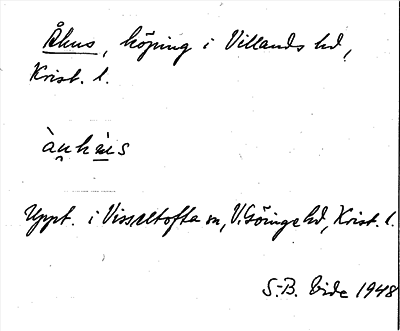 Åhus, köping i Villands hd,
Krist. l.
Uppt. i Visseltofta sn, V. Göinge hd, Krist. l.
S-B. Vide 1948